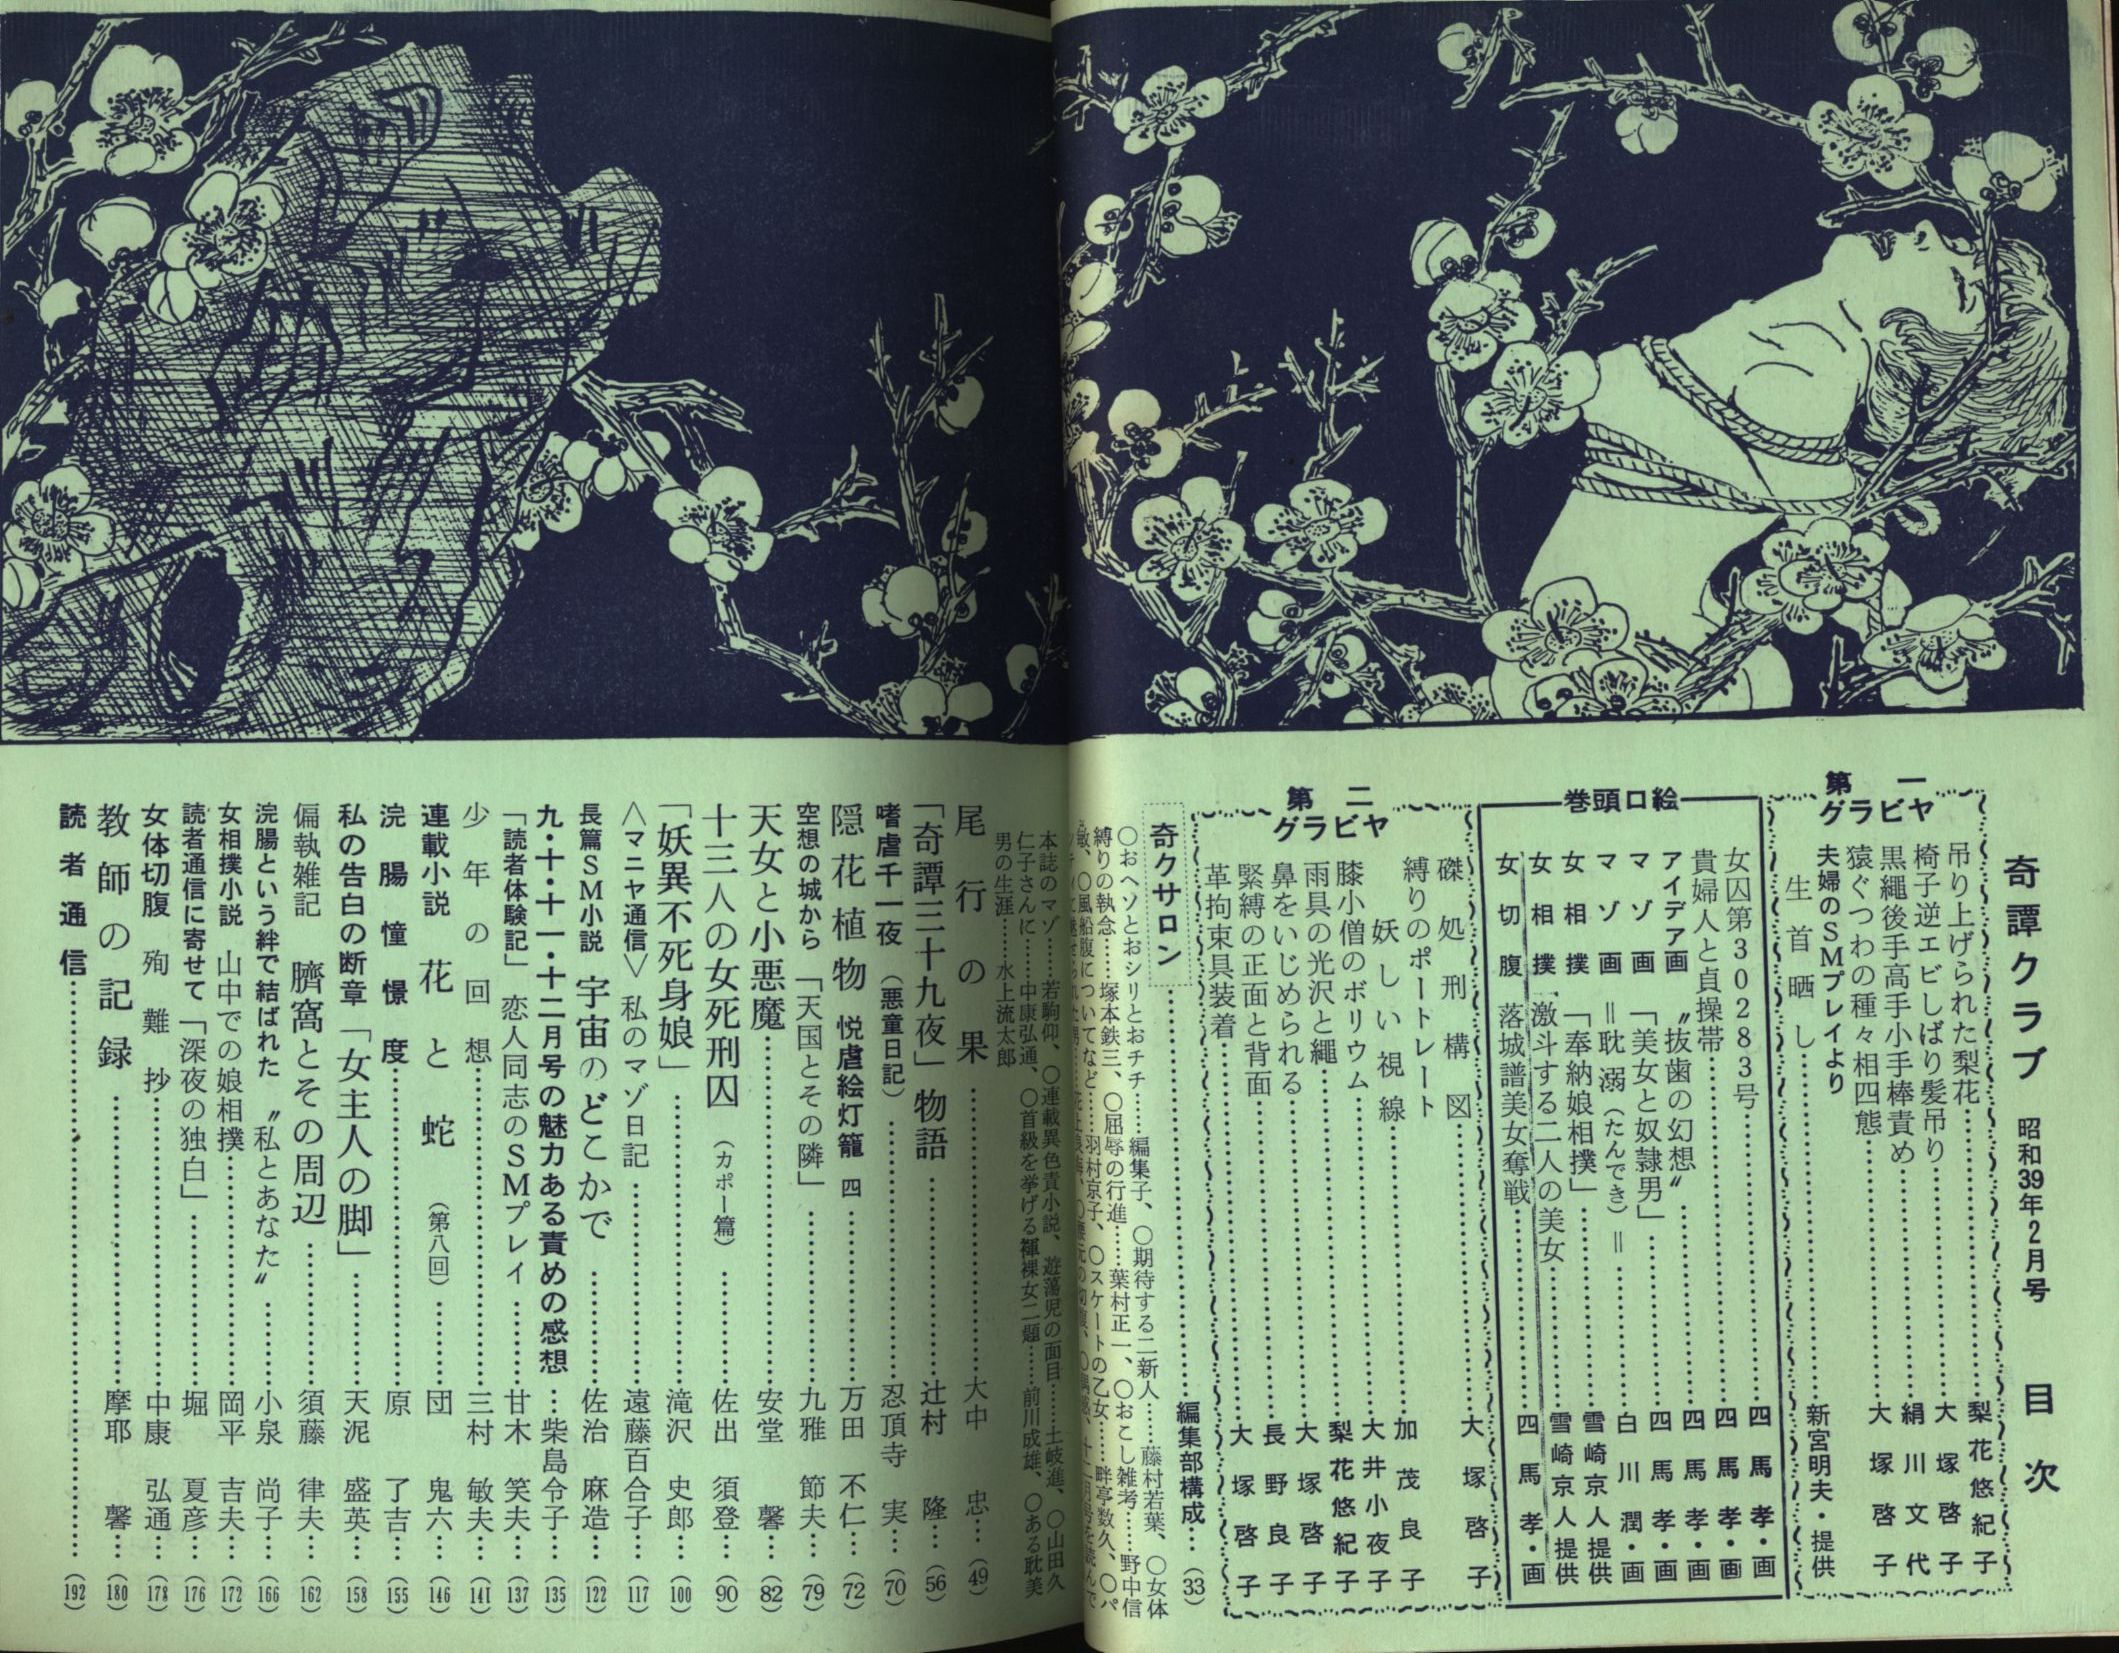 奇譚クラブ 昭和39年2月号 目次
第一グラビヤ
吊り上げられた梨花……梨花悠紀子
椅子逆エビしばり髪吊り……大塚啓子
黒縄後手高手小手棒責め……絹川文代
猿ぐつわの種々相四態……大塚啓子
夫婦のSMプレイより
生首晒し……新宮明夫・提供
巻頭口絵
女囚第30283号……四馬孝・画
貴婦人と貞操帯……四馬孝・画
アイデア画 〝抜歯の幻想〟……四馬孝・画
マゾ画 「美女と奴隷男」……四馬孝・画
マゾ画 =耽溺(たんでき)=……白川潤・画
女相撲 「奉納娘相撲」……雪崎京人提供
女相撲 激斗する二人の美女……雪崎京人提供
女切腹 落城譜美女奪戦……四馬孝・画
第二グラビヤ
磔処刑構図……大塚啓子
縛りのポートレート
妖しい視線……加茂良子
膝小僧のボリウム……大井小夜子
雨具の光沢と縄……梨花悠紀子
鼻をいじめられる……大塚啓子
緊縛の正面と背面……長野良子
革拘束具装着……大塚啓子
奇クサロン……編集部構成…(33)
○おヘソとおシリとおチチ……編集子、○期待する二新人……藤村若葉、○女体
縛りの執念……塚本鉄三、○屈辱の行進……葉村正一、○おこし雑考……野中信
敏、○風船腹についてなど……羽村京子、○スケートの乙女……畔亭数久、○パ
本誌のマゾ……若駒仰、○連載異色責小説、遊蕩児の面目……土岐進、○山田久
仁子さんに……中康弘通、○首級を挙げる褌裸女二題……前川成雄、○ある耽美
男の生涯……水上流太郎
尾行の果……大中忠…(49)
「奇譚三十九夜」物語……辻村隆…(56)
嗜虐千一夜(悪童日記)……忍頂寺実…(70)
隠花植物 悦虐絵灯籠 四……万田不仁…(72)
空想の城から 「天国とその隣」……九雅節夫…(79)
天女と小悪魔……安堂馨…(82)
十三人の女死刑囚(カポー篇)……佐出須登…(90)
「妖異不死身娘」……滝沢史郎…(100)
〈マニヤ通信〉私のマゾ日記……遠藤百合子…(117)
長篇SM小説 宇宙のどこかで……佐治麻造…(122)
九・十・十一・十二月号の魅力ある責めの感想…柴島令子…(135)
「読者体験記」 恋人同志のSMプレイ……甘木笑夫…(137)
少年の回想……三村敏夫…(141)
連載小説 花と蛇(第八回)……団鬼六…(146)
浣腸憧憬度……原了吉…(155)
私の告白の断章「女主人の脚」……天泥盛英…(158)
偏執雑記 臍窩とその周辺……須藤律夫…(162)
浣腸という絆で結ばれた 〝私とあなた〟……小泉尚子…(166)
女相撲小説 山中での娘相撲……岡平吉夫…(172)
読者通信に寄せて「深夜の独白」……堀夏彦…(176)
女体切腹 殉難抄……中康弘通…(178)
教師の記録……摩耶馨…(180)
読者通信……(192)